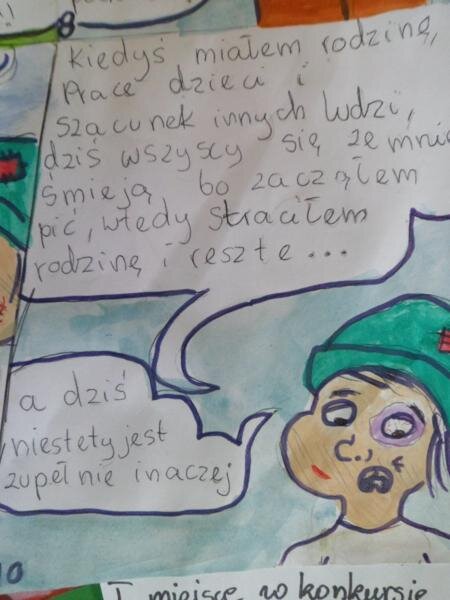 8
Kiedyś miałem rodzinę,
Prace dzieci i
szacunek innych ludzi,
dziś wszyscy się ze mnie
śmieją bo zacząłem
pić, wtedy straciłem
rodzinę i resztę...
a dziś
niestety jest
zupełnie inaczej
10
I miejsce w konkursie